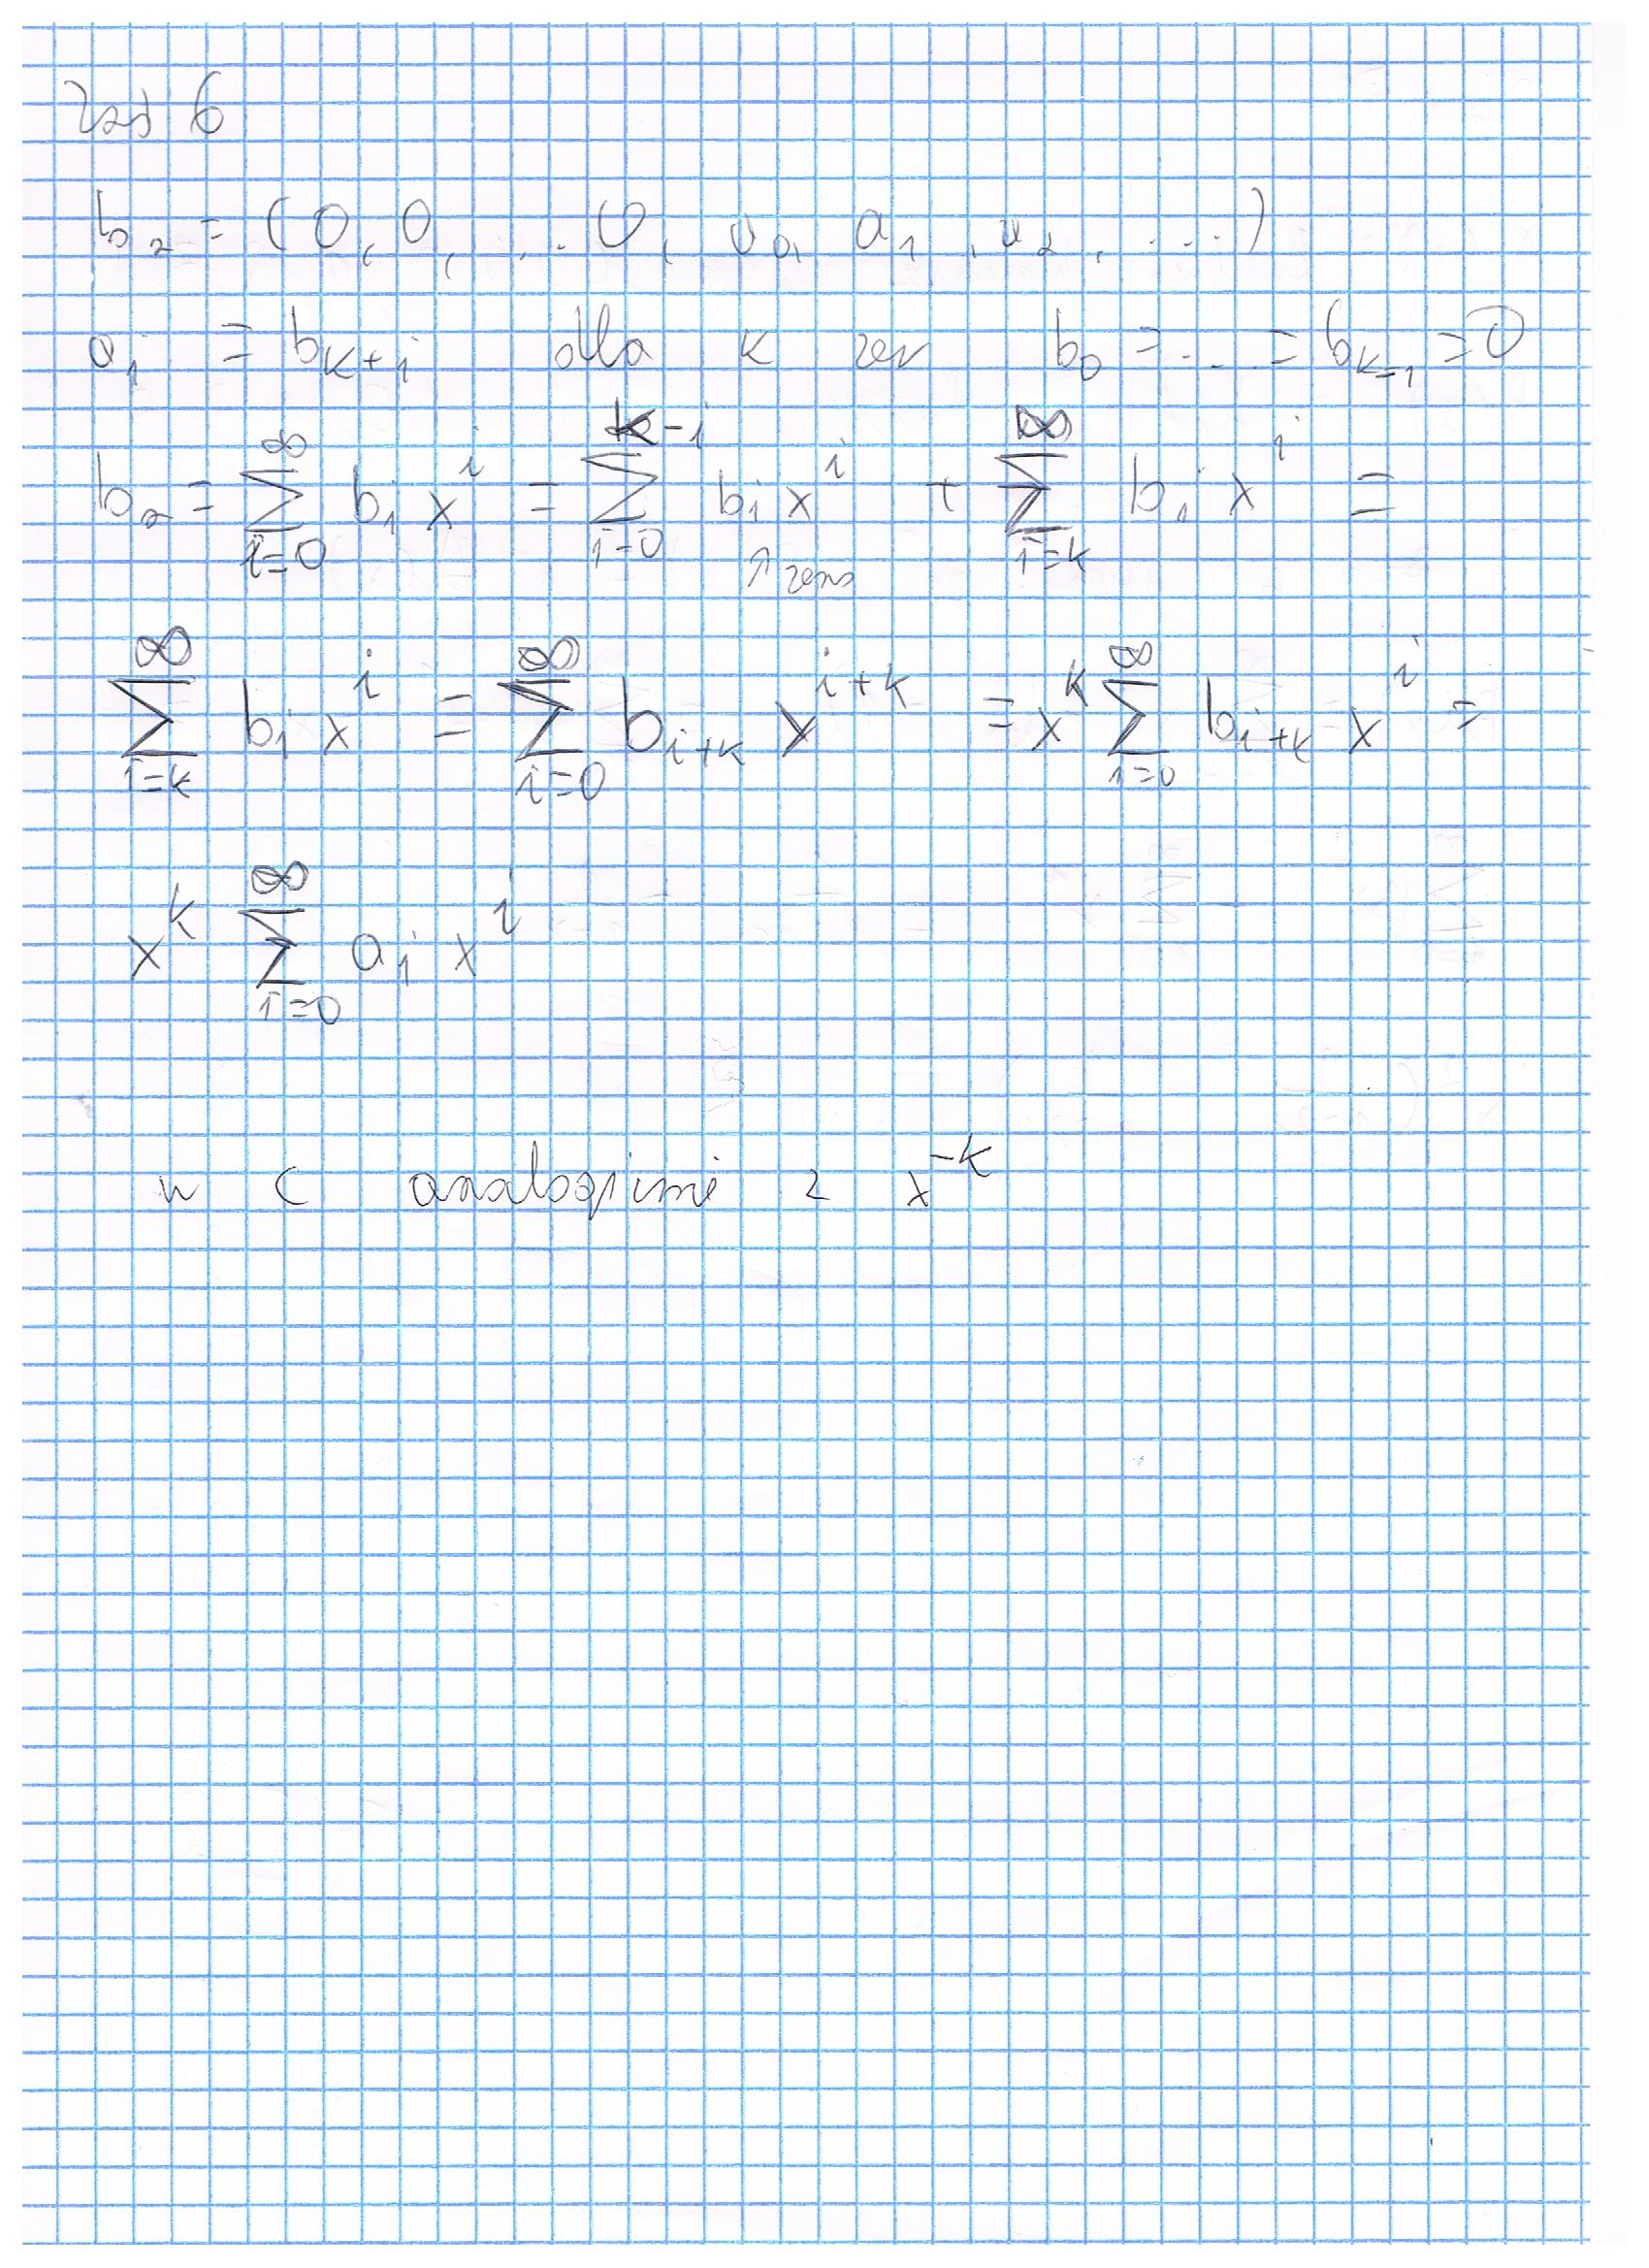 zad 6
b_n = (0, 0, ... 0, a_0, a_1, a_2, ...)
a_i = b_{k+i} dla k zer b_0 = ... = b_{k-1} = 0
b_n = \sum_{i=0}^{\infty} b_i x^i = \sum_{i=0}^{k-1} b_i x^i + \sum_{i=k}^{\infty} b_i x^i =
↑ zero
\sum_{i=k}^{\infty} b_i x^i = \sum_{i=0}^{\infty} b_{i+k} x^{i+k} = x^k \sum_{i=0}^{\infty} b_{i+k} x^i =
x^k \sum_{i=0}^{\infty} a_i x^i
w C analogicznie z x^{-k}